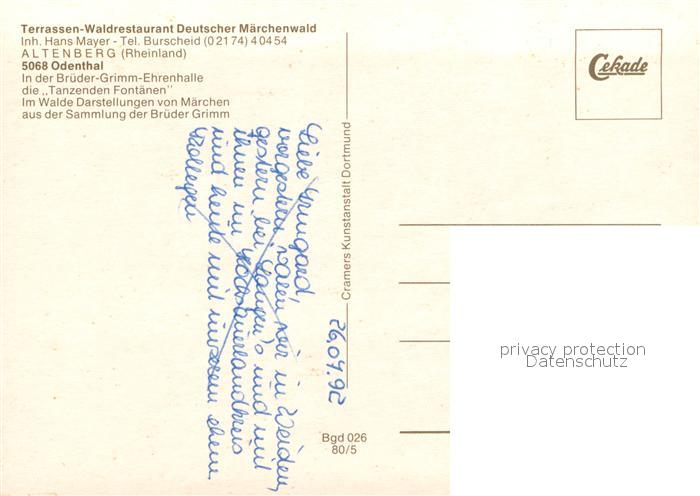 Terrassen-Waldrestaurant Deutscher Märchenwald
Inh. Hans Mayer - Tel. Burscheid (0 21 74) 4 04 54
ALTENBERG (Rheinland)
5068 Odenthal
In der Brüder-Grimm-Ehrenhalle
die „Tanzenden Fontänen"
Im Walde Darstellungen von Märchen
aus der Sammlung der Brüder Grimm
Cekade
Cramers Kunstanstalt Dortmund
26.04.92
Liebe Irmgard,
vorgestern waren wir in Weiden,
gestern bei Langen's und mit
ihnen im Hochsauerlandkreis
und heute mit unserem ehem.
Kollegen
Bgd 026
80/5
privacy protection
Datenschutz